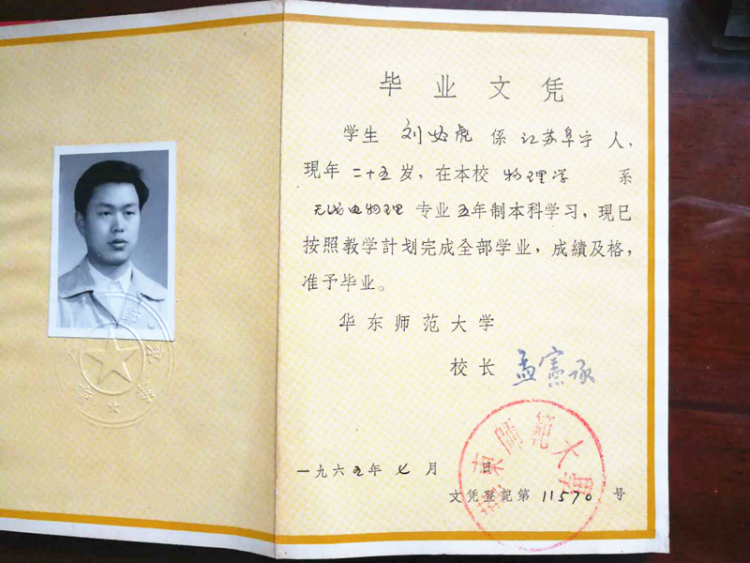 毕业文凭
学生 刘必虎 係 江苏阜宁 人，
現年 二十五 岁，在本校 物理学 系
无线电物理 专业 五 年制本科学习，現已
按照教学計划完成全部学业，成績及格，
准予毕业。
华东师范大学
校长 孟憲承
一九六五年 七 月 日
文凭登記第 11570 号
華東師範大學